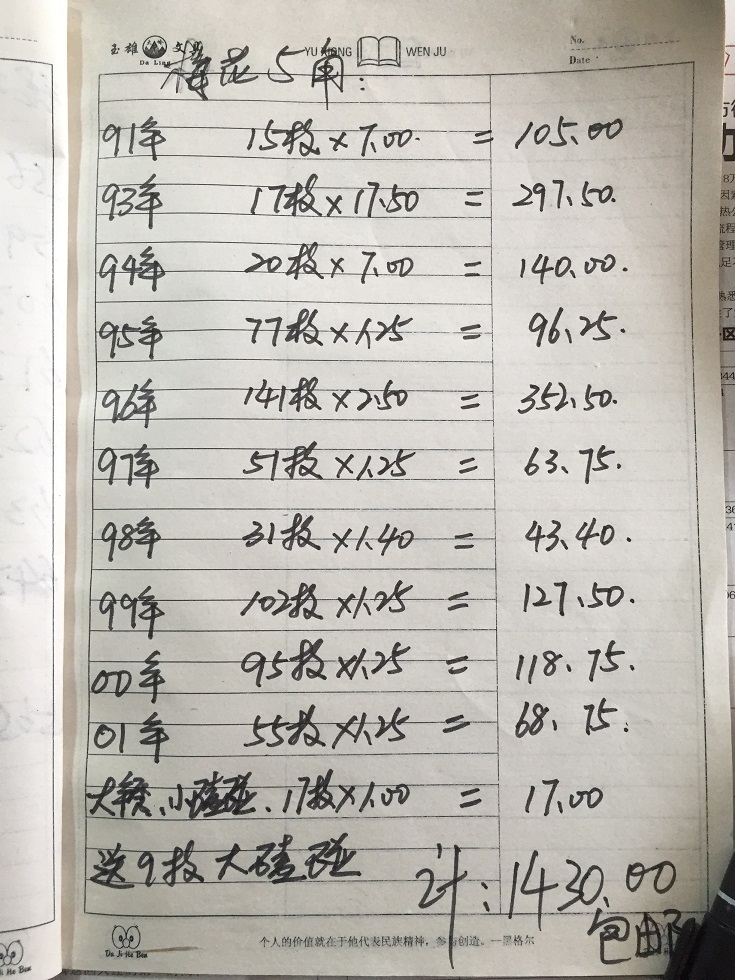 玉雄 文具 YU XIONG WEN JU No.
Da Ling Date
梅花5角:
91年 15枚×7.00 = 105.00
93年 17枚×17.50 = 297.50.
94年 20枚×7.00 = 140.00.
95年 77枚×1.25 = 96.25.
96年 141枚×2.50 = 352.50.
97年 51枚×1.25 = 63.75.
98年 31枚×1.40 = 43.40.
99年 102枚×1.25 = 127.50.
00年 95枚×1.25 = 118.75.
01年 55枚×1.25 = 68.75.
大锈、小磕碰、17枚×1.00 = 17.00
送9枚大磕碰 计:1430.00
包由
个人的价值就在于他代表民族精神，参与创造。—黑格尔
Da Ji Ha Ben